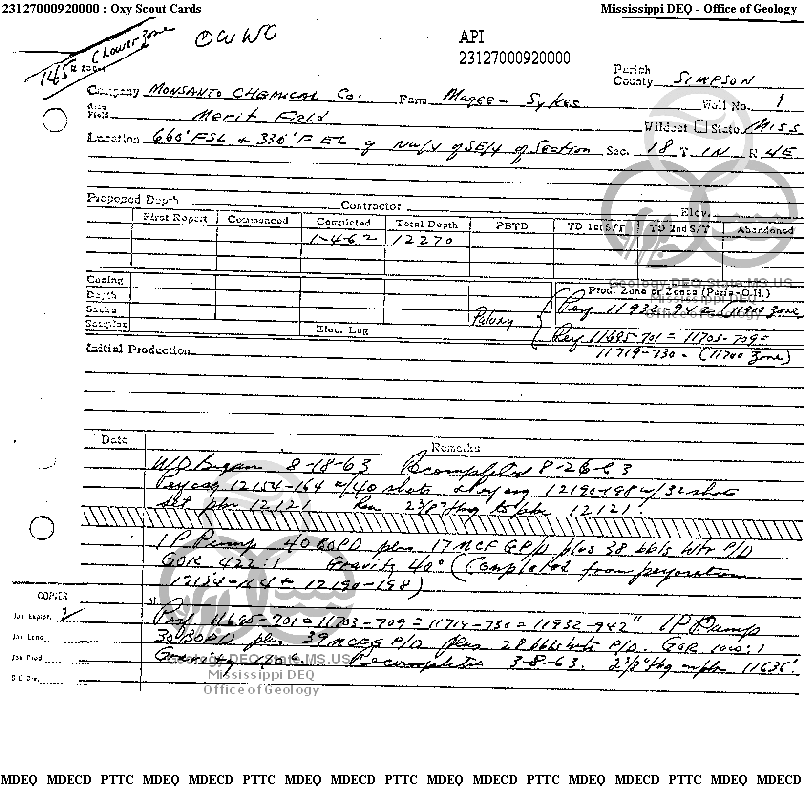 23127000920000 : Oxy Scout Cards
Mississippi DEQ - Office of Geology
(Lower Zone
OWWO
API
23127000920000
Parish
County SIMPSON
Company MONSANTO CHEMICAL Co. Farm Magee - Sykes Well No. 1
Area
Field Merit Field Wildcat State MISS
Location 660' FSL & 330' FEL of NW/4 of SE/4 of Section Sec. 18 T 1N R 4E
Proposed Depth Contractor Elev.
First Report Commenced Completed Total Depth PBTD TD 1st S/T TD 2nd S/T Abandoned
1-4-62 12270
Casing
Depth
Sacks
Samples Elec. Log
Prod. Zone or Zones (Perfs-O.H.)
Geology.DEQ.State.MS.US
Mississippi DEQ
Office of Geology
Paluxy
Perf 11932-942 = (11900 Zone)
Perf 11695-701 = 11703-709 =
11719-730 = (11700 Zone)
Initial Production
Date Remarks
WO Began 8-18-63 Recompleted 8-26-63
12154-164 w/40 shots 12190-198 w/32 shots
set pkr 12121 Ran 2 3/8" tbg to pkr 12121
IP Pump 40 BOPD plus 17 MCF GP/D plus 38 bbls Wtr P/D
GOR 422:1 Gravity 40° (Completed from perforations
12154-164 + 12190-198)
COPIES
Jax Explor. 1
Jax Land
Jax Prod
Perf 11695-701 = 11703-709 = 11719-730 = 11932-942" IP Pump
30 BOPD plus 39 MCFG P/D plus 28 bbls wtr P/D. GOR 1000:1
Gravity Recompleted 3-8-63. 2 3/8" tbg on pkr 11635'.
Geology.DEQ.State.MS.US
Mississippi DEQ
Office of Geology
MDEQ MDECD PTTC MDEQ MDECD PTTC MDEQ MDECD PTTC MDEQ MDECD PTTC MDEQ MDECD PTTC MDEQ MDECD